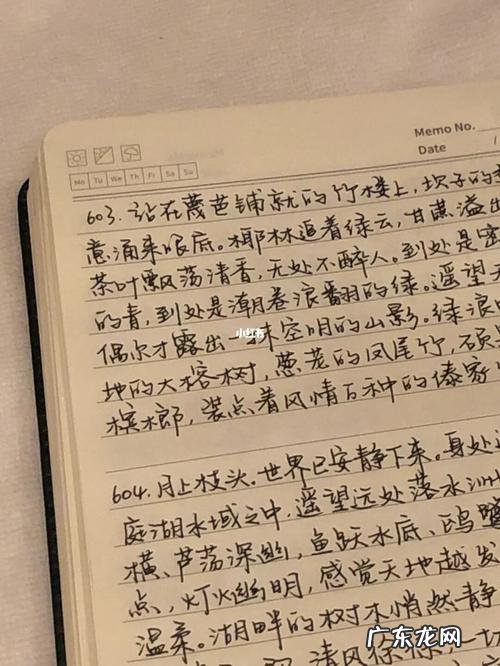 Memo No.
Date
Mo Tu We Th Fr Sa Su
603. 站在蔑笆铺就的竹楼上, 坝子的
意涌来眼底。椰林追着绿云, 甘蔗溢出
茶叶飘荡清香, 无处不醉人。到处是密
的青, 到处是潮卷浪翻的绿。遥望天
偶尔才露出一抹空明的山影。绿浪
地的大榕树, 葱茏的凤尾竹, 硕
槟榔, 装点着风情万种的傣家
小红书
604. 月上枝头。世界已安静下来。身处
庭湖水域之中, 遥望远处落水洲
横、芦荡深幽, 鱼跃水底、鸥鹭
点, 灯火幽明, 感觉天地越发
温柔。湖畔的树木悄然静
清风徐 一切
广东龙网